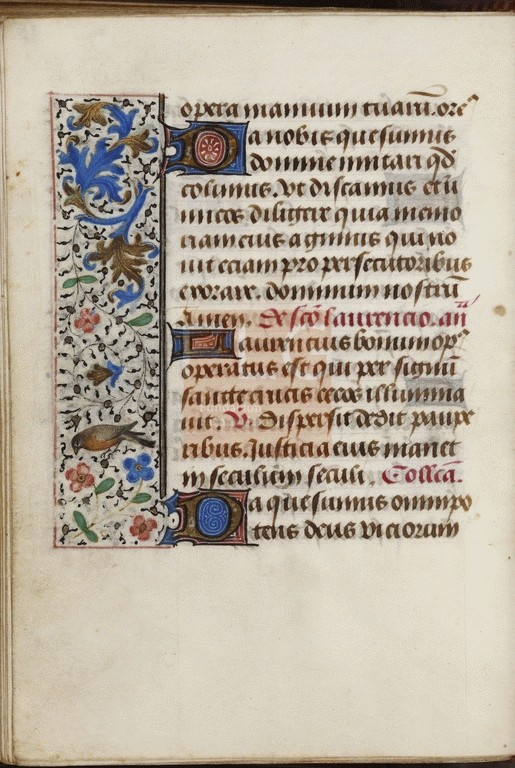 opera manuum tuarū. ore
Da nobis quesumus
domine imitari qd
colimus. vt discamus et ii
micos diligere quia memo
riam eius agimus qui no
uit eciam pro persecutoribus
exorare. dominum nostrū
Amen. De scō laurencio. an̄
Laurencius bonum op
operatus est qui per signū
sancte crucis cecos illumina
uit. V. Dispersit dedit paupe
ribus. Justicia eius manet
in seculum seculi. Collecā.
Da quesumus omnipo
tens deus viciorum